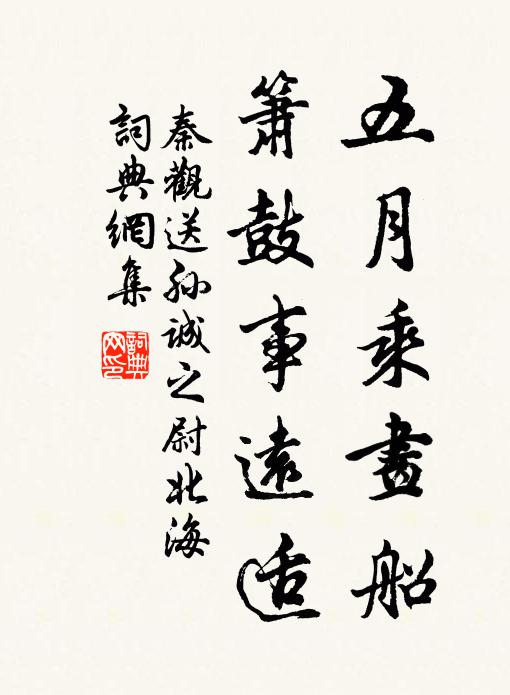 五月乘畫船
簫鼓事遠适
秦觀送孙誠之尉北海
詞典網集
詞典網印